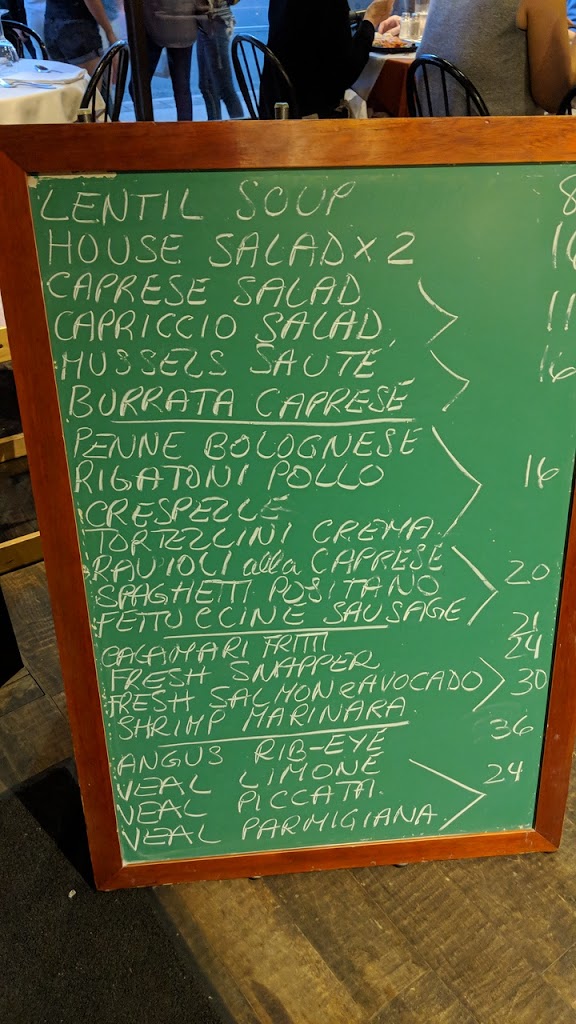 LENTIL SOUP 8
HOUSE SALAD X 2
CAPRESE SALAD
CAPRICCIO SALAD 11
MUSSELS SAUTE 16
BURRATA CAPRESE
PENNE BOLOGNESE
RIGATONI POLLO 16
CRESPELLE
TORTELLINI CREMA
RAVIOLI alla CAPRESE
SPAGHETTI POSITANO 20
FETTUCCINE SAUSAGE
CALAMARI FRITTI 21
FRESH SNAPPER 24
FRESH SALMON & AVOCADO 30
SHRIMP MARINARA
ANGUS RIB-EYE 36
VEAL LIMONE
VEAL PICCATA 24
VEAL PARMIGIANA